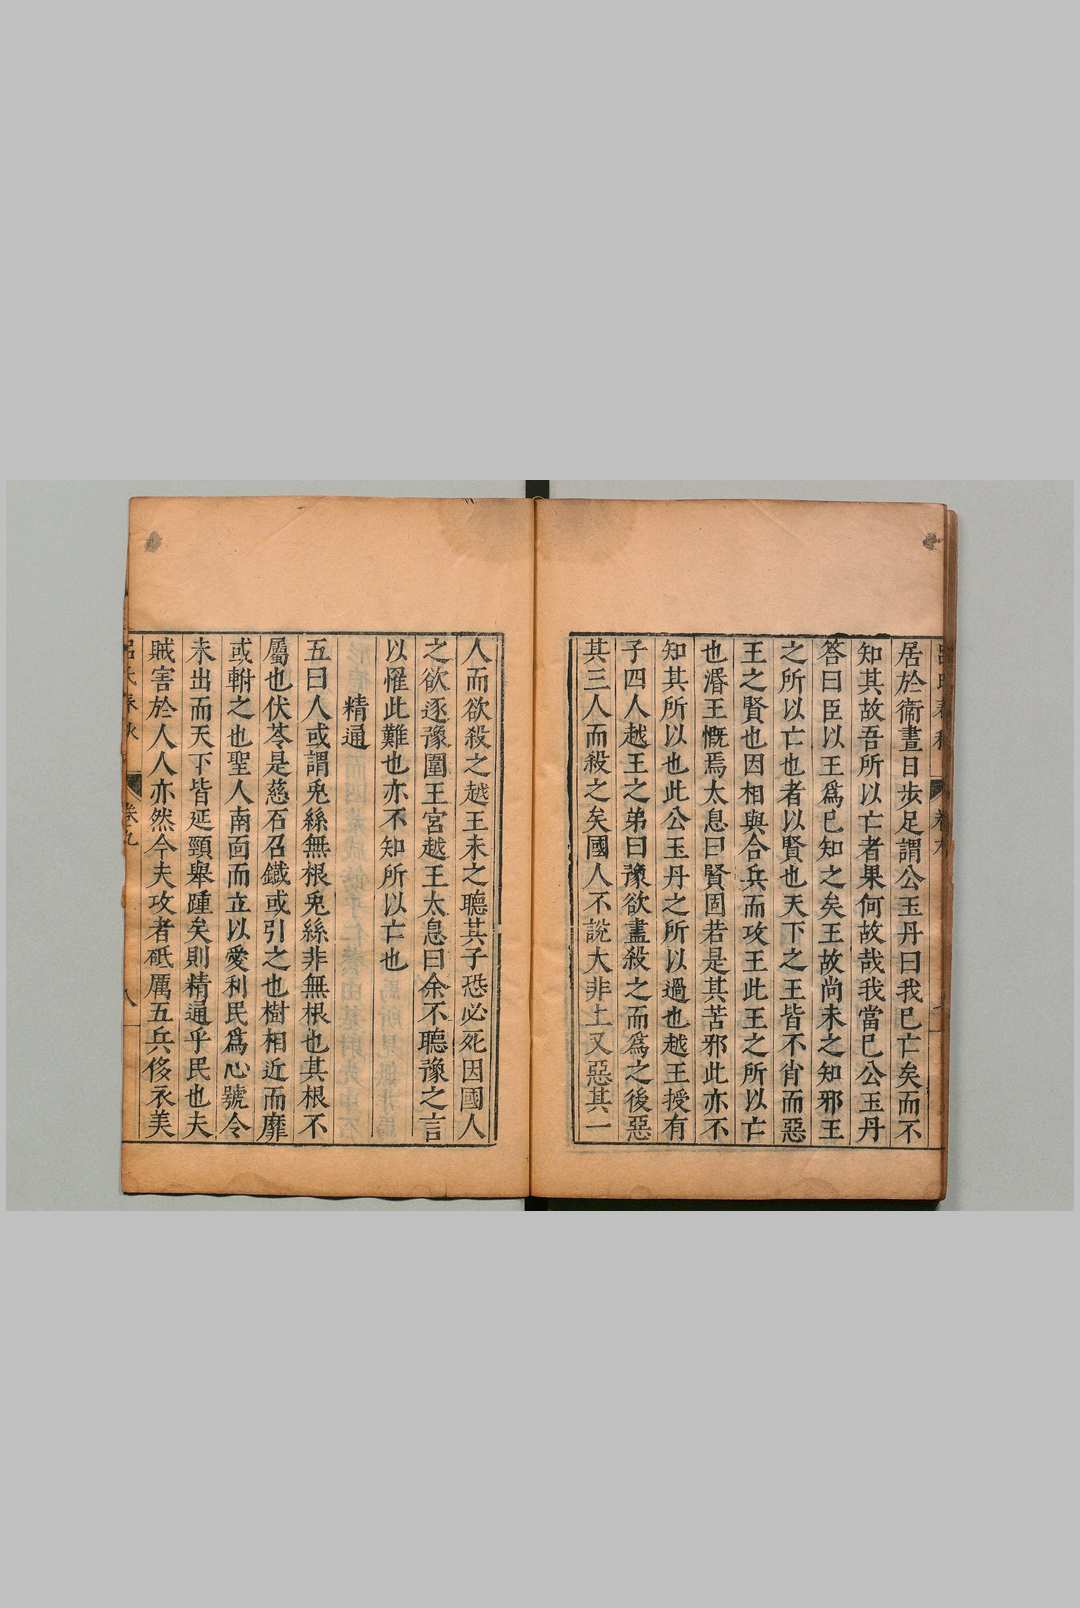 居於衞晝日步足謂公玉丹曰我已亡矣而不
知其故吾所以亡者果何故哉我當已公玉丹
答曰臣以王爲已知之矣王故尚未之知邪王
之所以亡也者以賢也天下之王皆不肖而惡
王之賢也因相與合兵而攻王此王之所以亡
也湣王慨焉太息曰賢固若是其苦邪此亦不
知其所以也此公玉丹之所以過也越王授有
子四人越王之弟曰豫欲盡殺之而爲之後惡
其三人而殺之矣國人不說大非上又惡其一
人而欲殺之越王未之聽其子恐必死因國人
之欲逐豫圍王宮越王太息曰余不聽豫之言
以罹此難也亦不知所以亡也
精通
五曰人或謂兎絲無根兎絲非無根也其根不
屬也伏苓是慈石召鐵或引之也樹相近而靡
或軵之也聖人南面而立以愛利民爲心號令
未出而天下皆延頸舉踵矣則精通乎民也夫
賊害於人人亦然今夫攻者砥厲五兵侈衣美
呂氏春秋
卷九
八